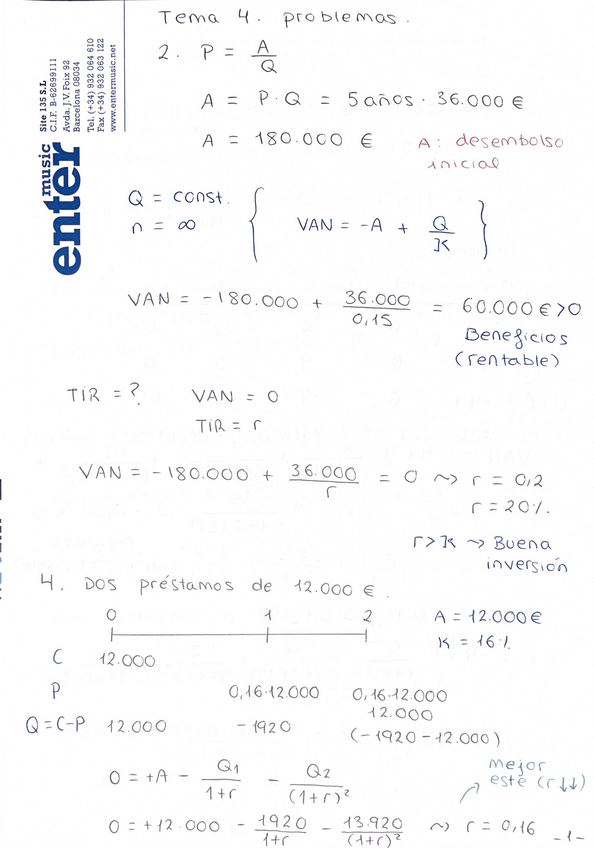 Tema 4. problemas.
enter music
Site 135 S.L
C.I.F. B-62699111
Avda. J.V. Foix 92
Barcelona 08034
Tel. (+34) 932 064 610
Fax (+34) 932 063 122
www.entermusic.net
2. P = A/Q
A = P·Q = 5 años · 36.000 €
A = 180.000 € A: desembolso
inicial
Q = const.
n = ∞ { VAN = -A + Q/K }
VAN = -180.000 + 36.000/0,15 = 60.000 € >0
Beneficios
(rentable)
TIR = ? VAN = 0
TIR = r
VAN = -180.000 + 36.000/r = 0 ~> r = 0,2
r = 20%.
r > K ~> Buena
inversión
4. DOS préstamos de 12.000 €.
0 1 2 A = 12.000 €
K = 16%
C 12.000
P 0,16·12.000 0,16·12.000
12.000
Q = C-P 12.000 -1920 (-1920-12.000)
0 = +A - Q1/(1+r) - Q2/(1+r)²
mejor
este (r↓↓)
0 = +12.000 - 1920/(1+r) - 13.920/(1+r)² ~> r = 0,16
-1-